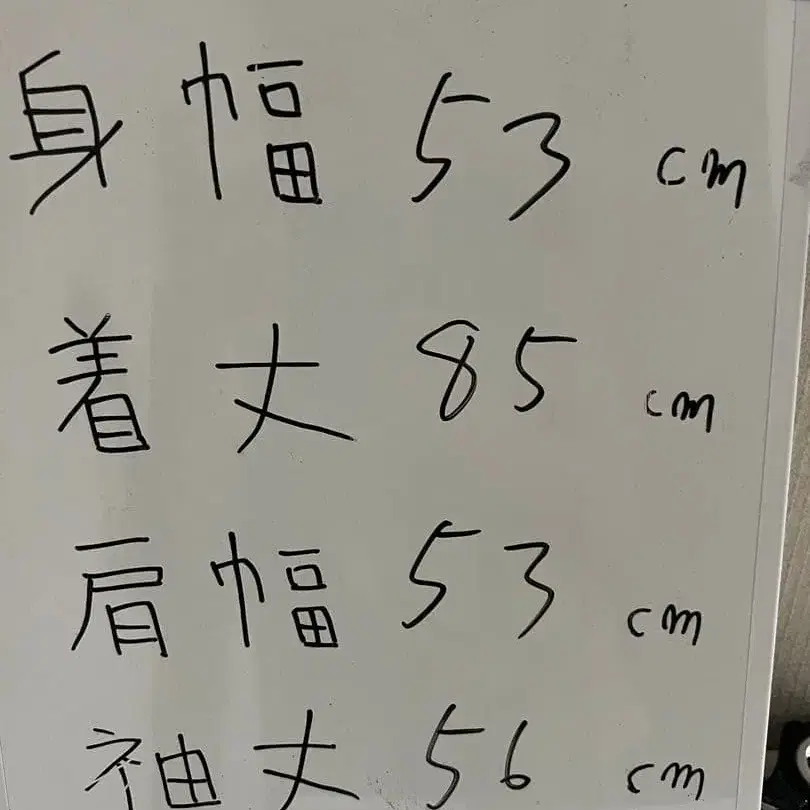 身幅 53 cm
着丈 85 cm
肩幅 53 cm
袖丈 56 cm